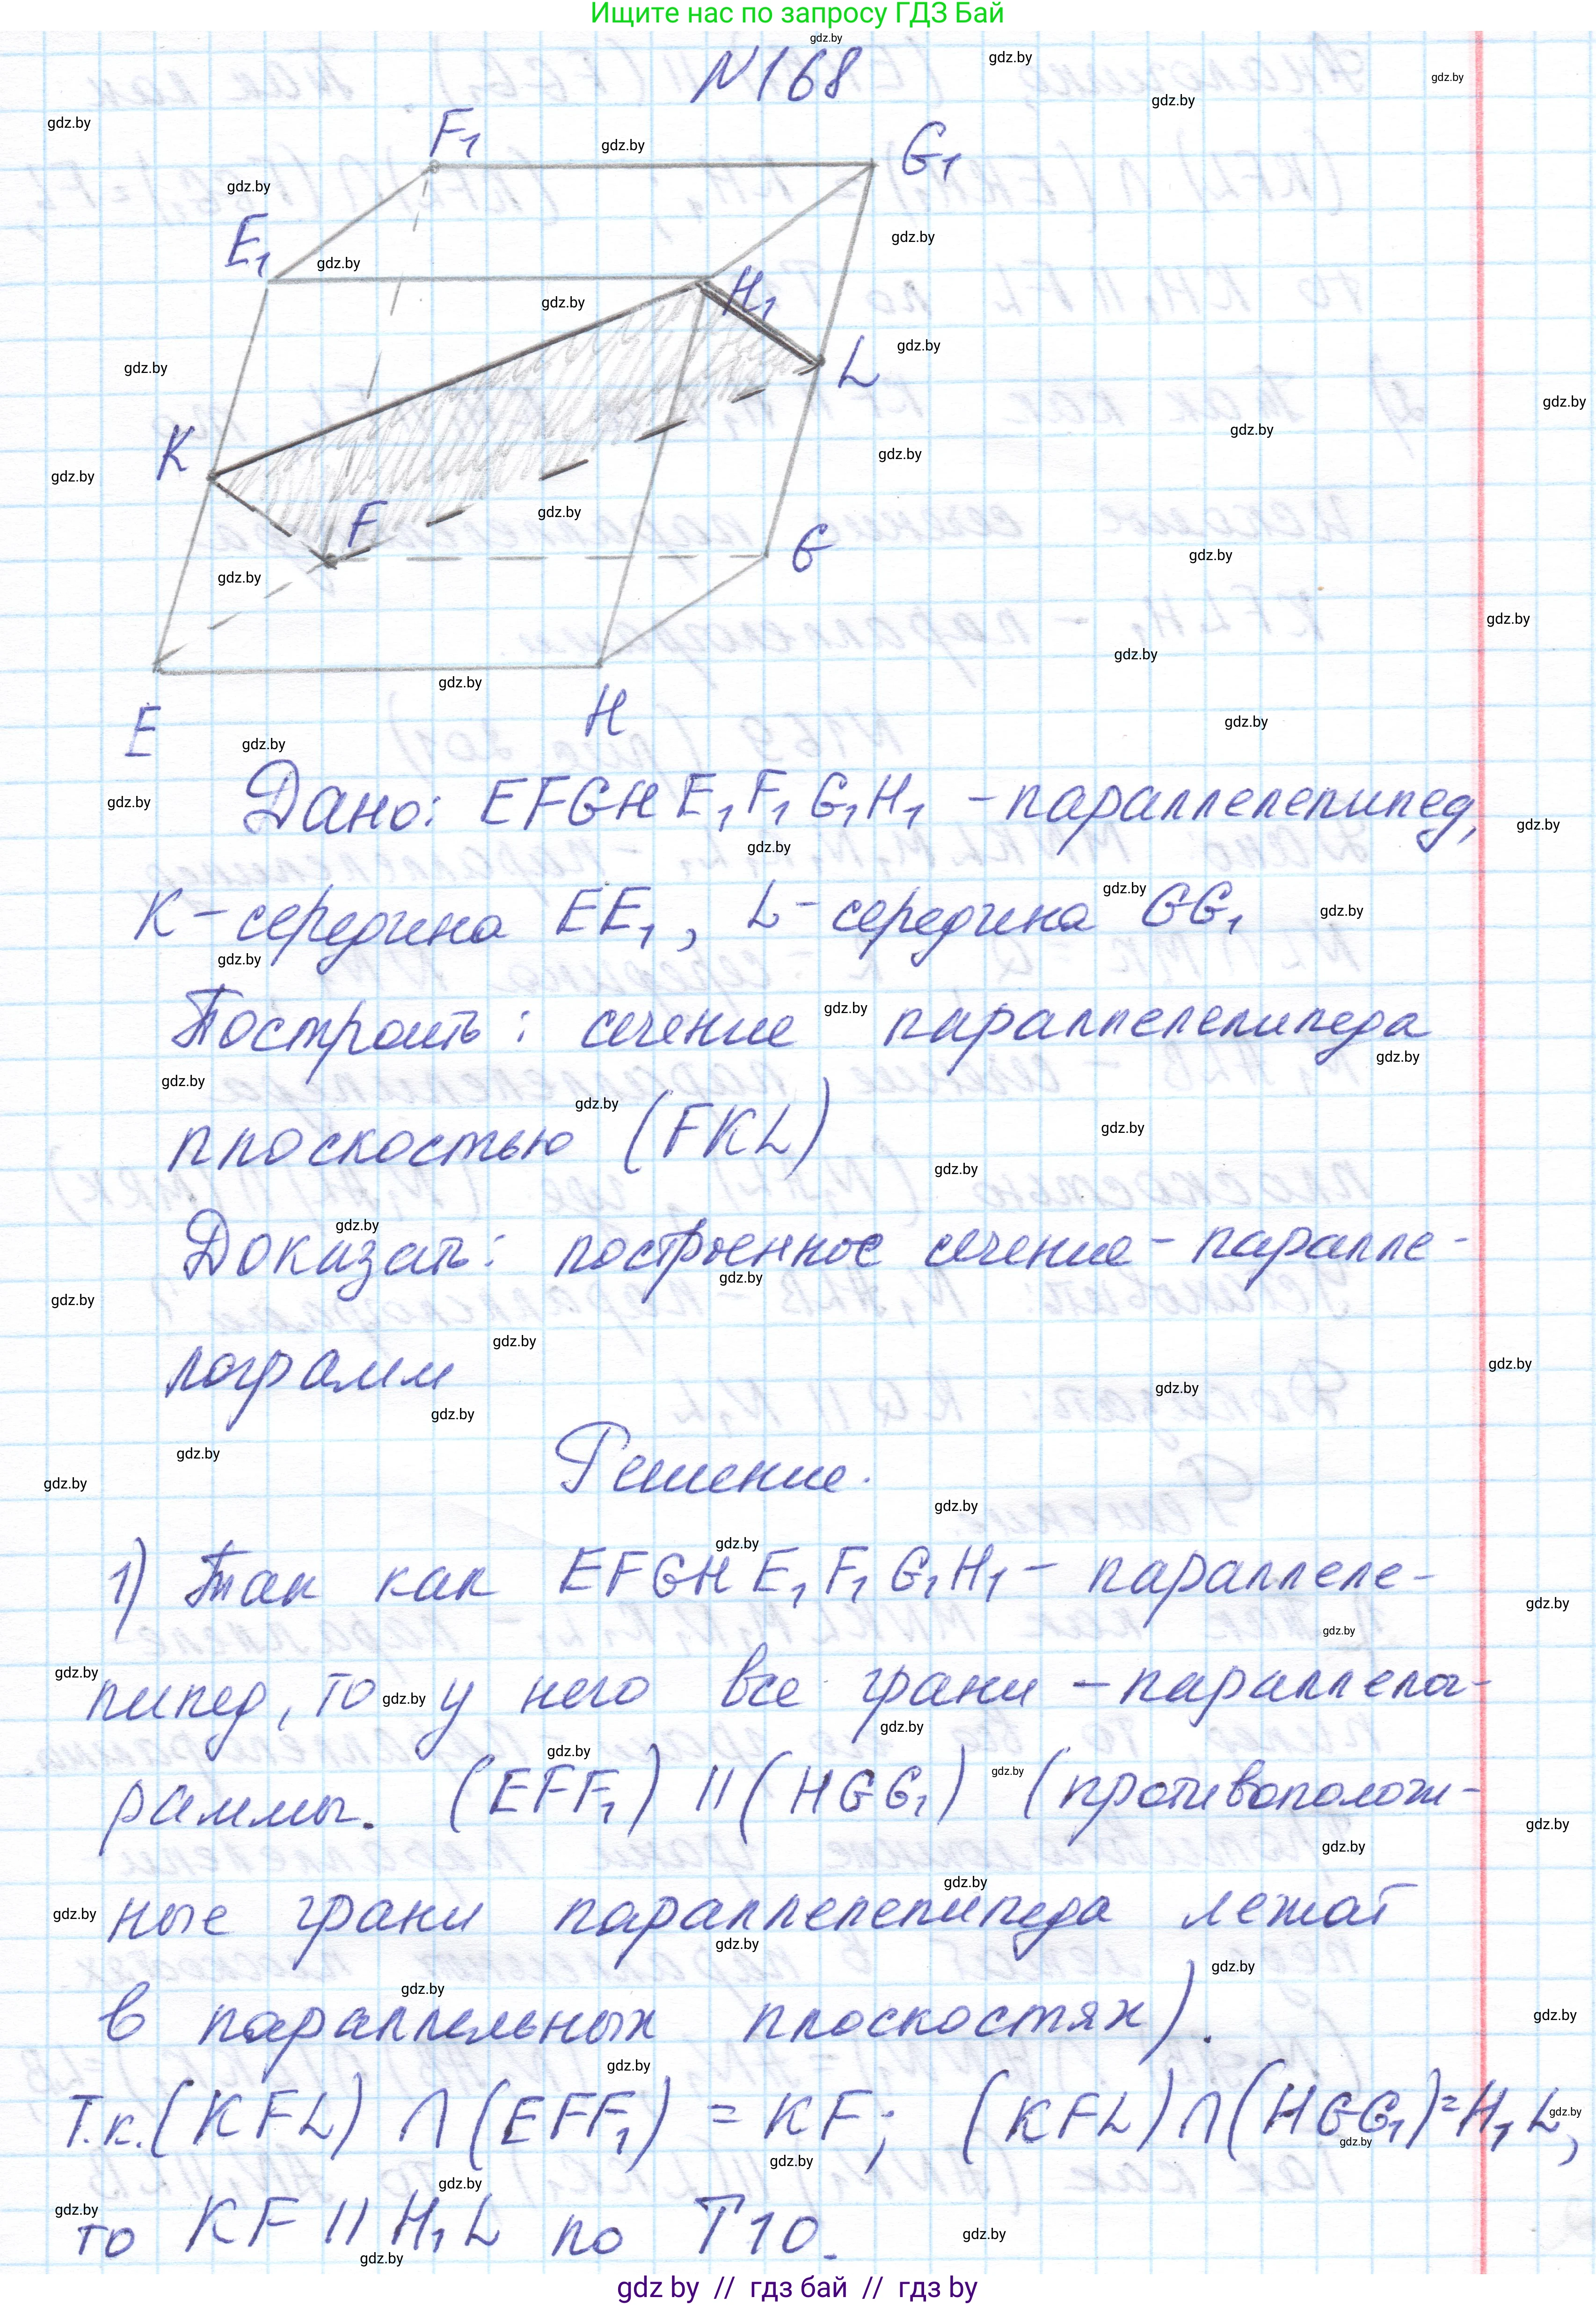 Ищите нас по запросу ГДЗ Бай
N168
F₁
G₁
E₁
H₁
L
K
F
G
E
H
Дано: EFGHE₁F₁G₁H₁ - параллелепипед,
K - середина EE₁, L - середина GG₁
Построить: сечение параллелепипеда
плоскостью (FKL)
Доказать: построенное сечение - паралле-
лограмм
Решение.
1) Так как EFGHE₁F₁G₁H₁ - параллеле-
пипед, то у него все грани - параллелог-
раммы. (EFF₁) || (HGG₁) (противополож-
ные грани параллелепипеда лежат
в параллельных плоскостях).
Т.к. (KFL) ∩ (EFF₁) = KF; (KFL) ∩ (HGG₁) = H₁L,
то KF || H₁L по Т10.
gdz by // гдз бай // гдз by
gdz.by